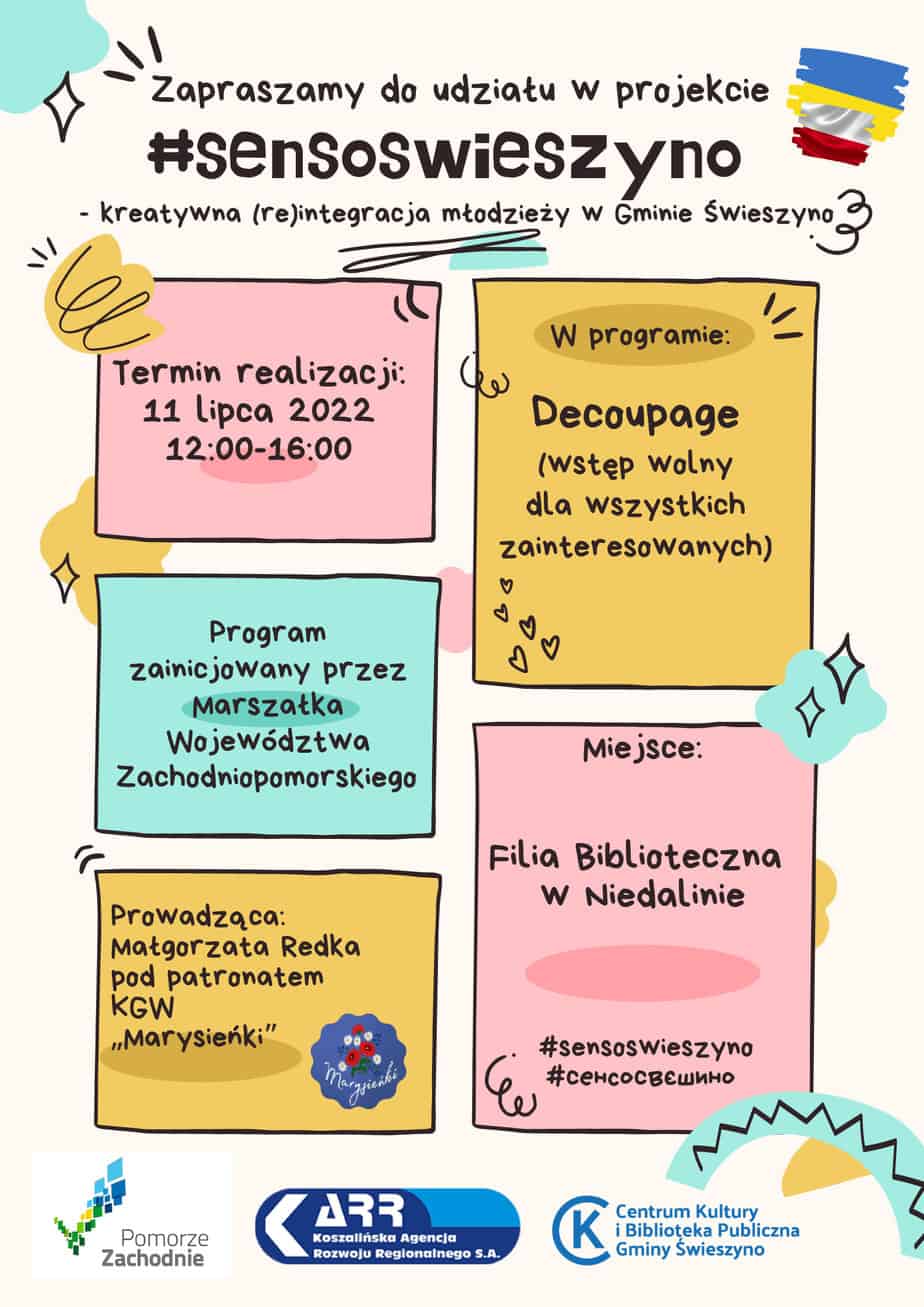 Zapraszamy do udziału w projekcie
#sensoswieszyno
- kreatywna (re)integracja młodzieży w Gminie Świeszyno
Termin realizacji:
11 lipca 2022
12:00-16:00
W programie:
Decoupage
(wstęp wolny
dla wszystkich
zainteresowanych)
Program
zainicjowany przez
Marszałka
Województwa
Zachodniopomorskiego
Miejsce:
Filia Biblioteczna
w Niedalinie
#sensoswieszyno
#сенсосвєшино
Prowadząca:
Małgorzata Redka
pod patronatem
KGW
„Marysieńki”
Marysieńki
Pomorze
Zachodnie
KARR
Koszalińska Agencja
Rozwoju Regionalnego S.A.
CK
Centrum Kultury
i Biblioteka Publiczna
Gminy Świeszyno